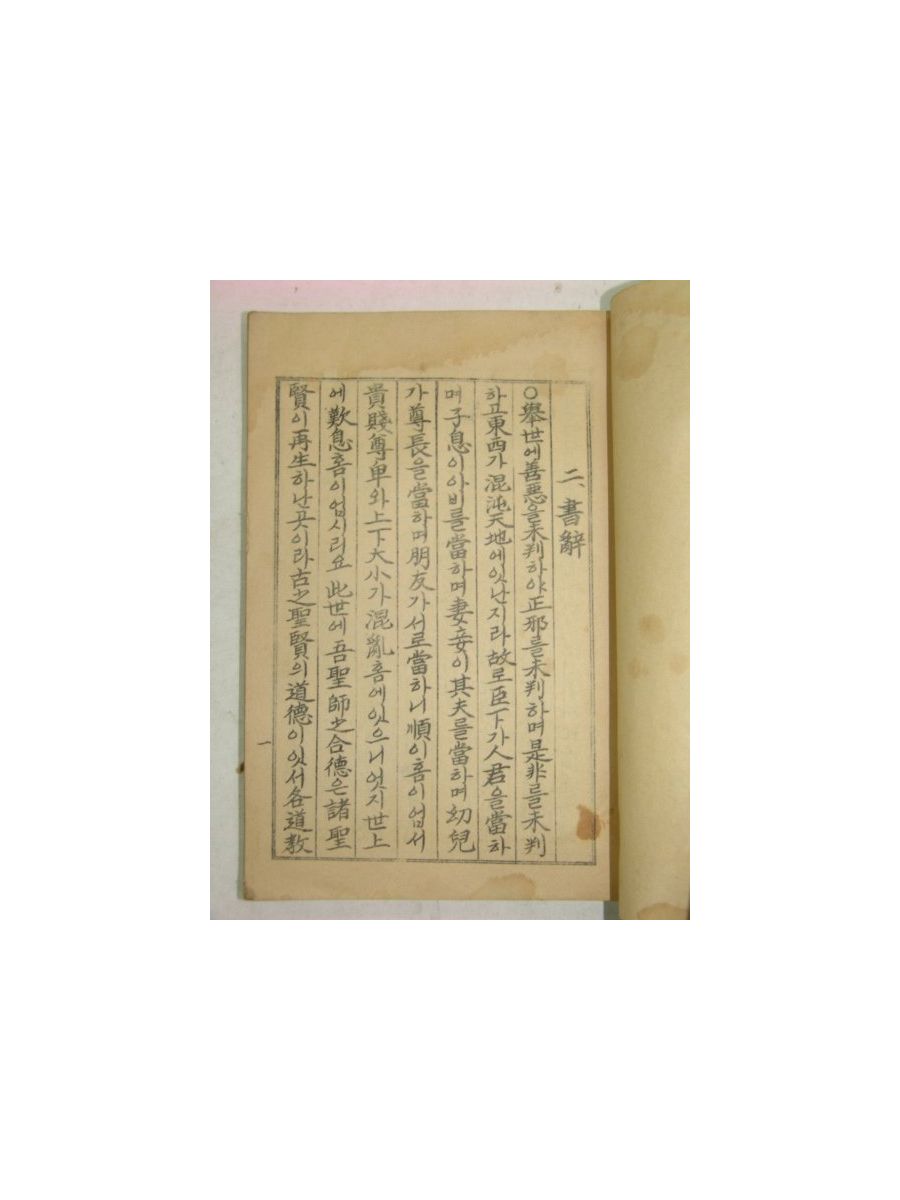 二、書辭
○擧世에善惡을未判하야正邪를未判하며是非를未判
하고東西가混沌天地에잇난지라故로臣下가人君을當하
며子息이아비를當하며妻妾이其夫를當하며幼兒
가尊長을當하며朋友가서로當하니順이홈이업서
貴賤尊卑와上下大小가混亂홈에잇으니엇지世上
에歎息홈이업시리요此世에吾聖師之合德은諸聖
賢이再生하난곳이라古之聖賢의道德이잇서各道敎
一